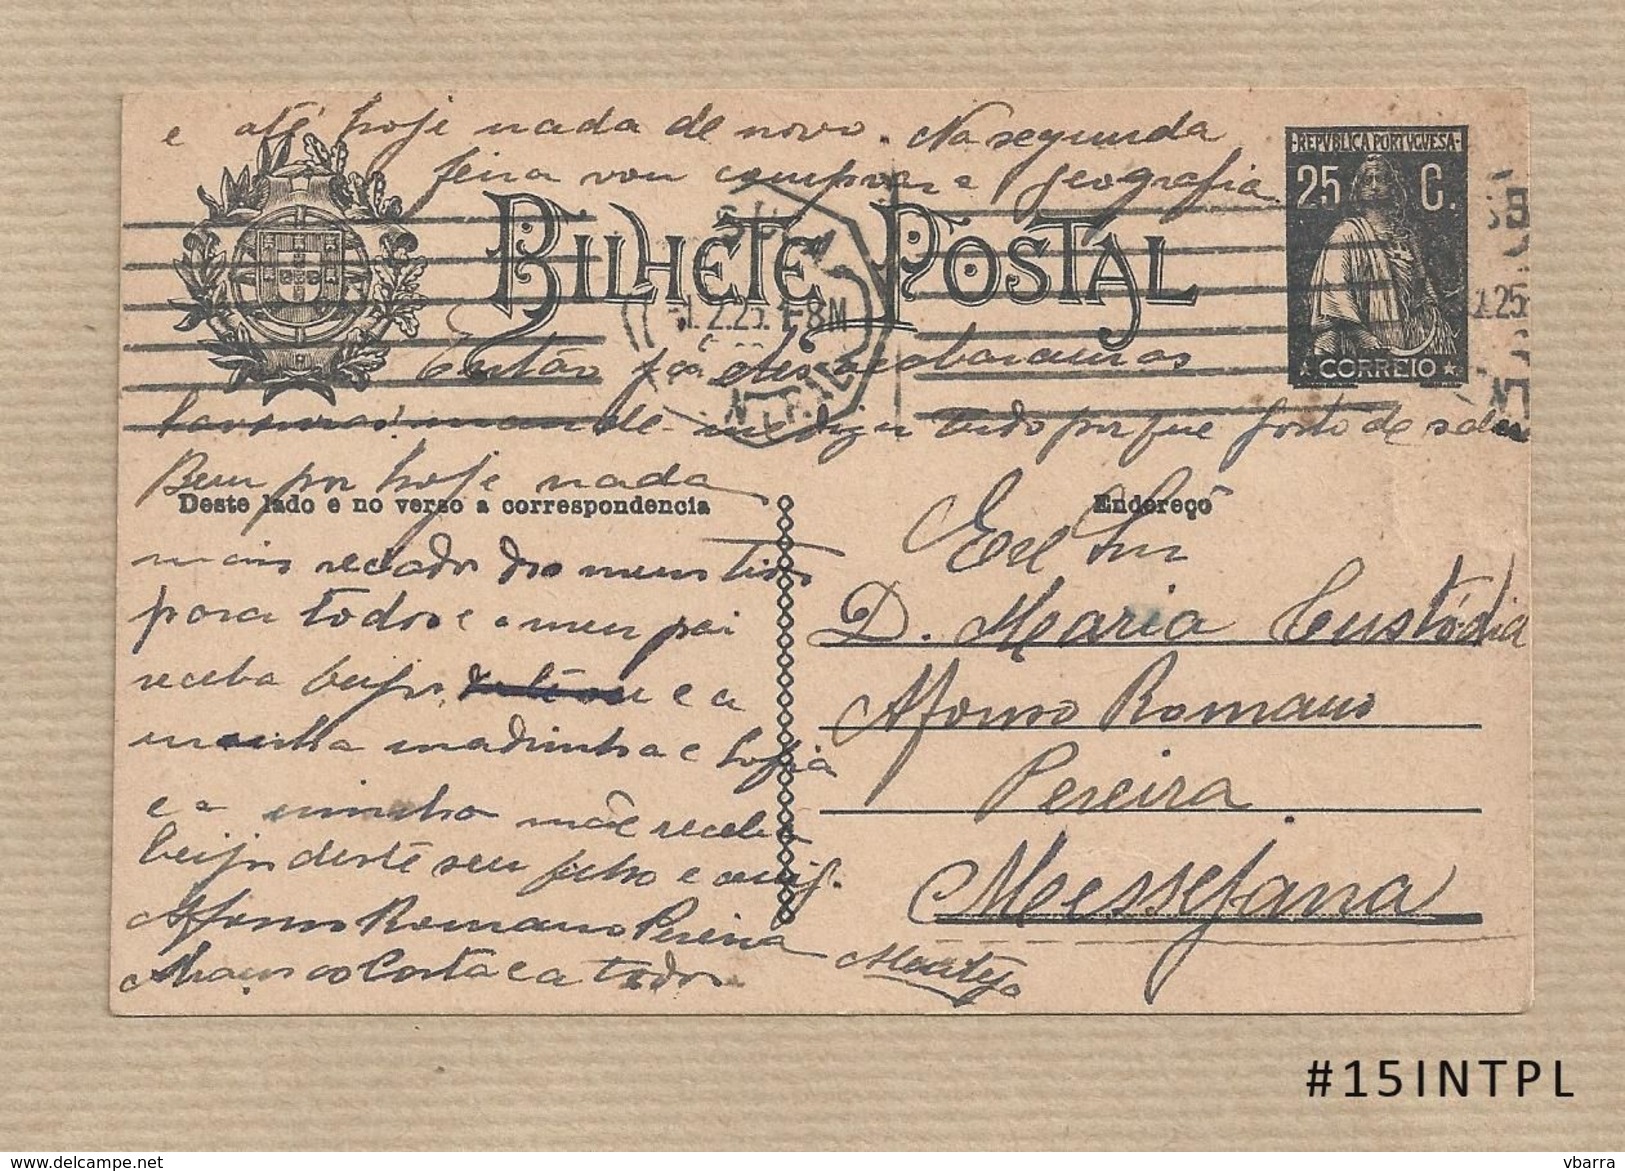 e até hoje nada de novo. Na segunda
feira vou comprar a geografia
REPVBLICA PORTVGVESA
25 C.
CORREIO
BILHETE POSTAL
1.2.25. 1-8M
Então já
mande-me dizer tudo por que gosto de
Bem por hoje nada
Deste lado e no verso a correspondencia
mais recados dos meus tios
para todos e o meu pai
receba beijos, e a
minha madrinha e Sofia
e a minha mãe receba
beijos deste seu filho e
Afonso Romano Pereira
Costa e a todos
Endereço
D. Maria Custódia
Afonso Romano
Pereira
Messejana
#15INTPL
www.delcampe.net
vbarra